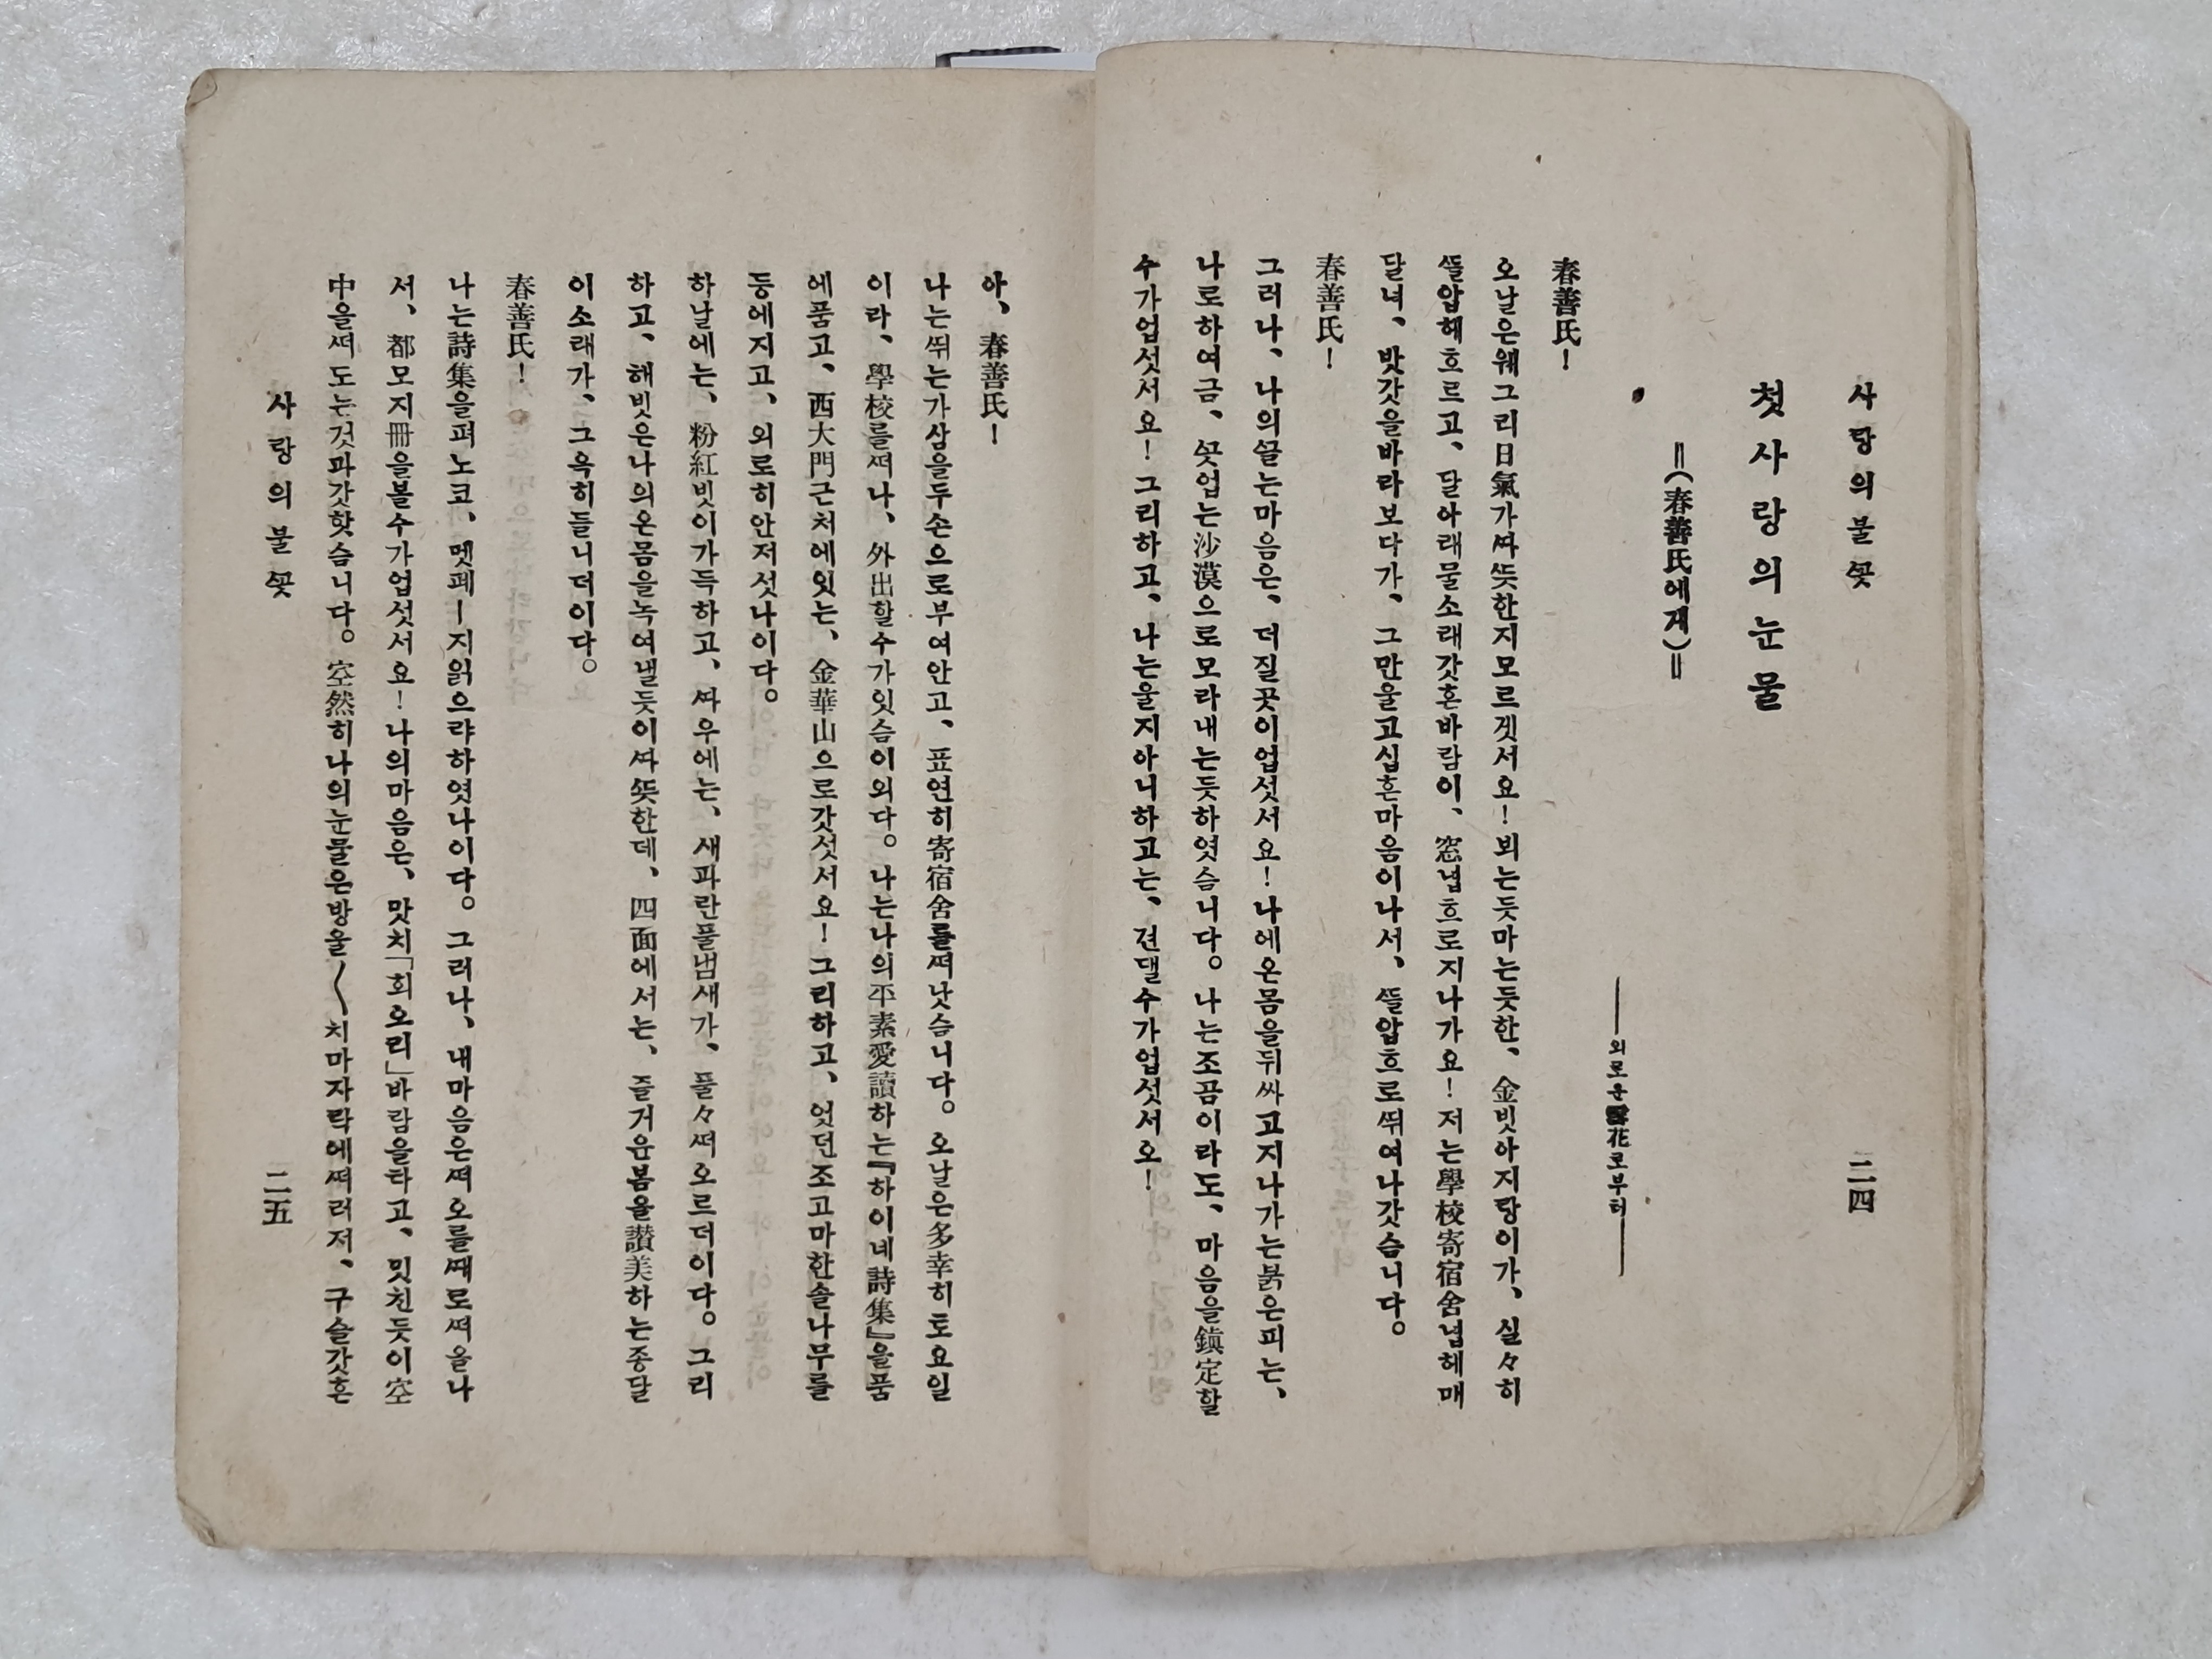 사랑의불ᄭᅩᆺ
二四
첫사랑의눈물
=(春善氏에게)=
──외로운花로부터──
春善氏!
오날은웨그리日氣가ᄯᅡᄯᅳᆺ한지모르겟서요! 뵈는듯마는듯한、金빗아지랑이가、실々히
ᄯᅳᆯ압헤흐르고、달아래물소래갓흔바람이、窓녑흐로지나가요! 저는學校寄宿舍녑헤매
달녀、밧갓을바라보다가、그만울고십흔마음이나서、ᄯᅳᆯ압흐로ᄯᅱ여나갓슴니다。
春善氏!
그러나、나의ᄭᅳᆯ는마음은、더질곳이업섯서요! 나에온몸을뒤싸고지나가는붉은피는、
나로하여금、ᄭᅳᆺ업는沙漠으로모라내는듯하엿슴니다。나는조곰이라도、마음을鎭定할
수가업섯서요! 그리하고、나는울지아니하고는、견댈수가업섯서오!
아、春善氏!
나는ᄯᅱ는가삼을두손으로부여안고、표연히寄宿舍를ᄯᅥ낫슴니다。오날은多幸히토요일
이라、學校를ᄯᅥ나、外出할수가잇슴이외다。나는나의平素愛讀하는『하이네詩集』을품
에품고、西大門근처에잇는、金華山으로갓섯서요! 그리하고、엇던조고마한솔나무를
등에지고、외로히안저섯나이다。
하날에는、粉紅빗이가득하고、ᄯᅡ우에는、새파란풀냄새가、풀々ᄯᅥ오르더이다。그리
하고、해빗은나의온몸을녹여낼듯이ᄯᅡᄯᅳᆺ한데、四面에서는、즐거운봄을讚美하는종달
이소래가、그윽히들니더이다。
春善氏!
나는詩集을펴노코、멧페ㅣ지읽으랴하엿나이다。그러나、내마음은ᄯᅥ오를ᄯᅢ로ᄯᅥ올나
서、都모지冊을볼수가업섯서요! 나의마음은、맛치「회오리」바람을타고、밋친듯이空
中을ᄯᅥ도는것과갓핫슴니다。空然히나의눈물은방울〱치마자락에ᄯᅥ러저、구슬갓흔
사랑의불ᄭᅩᆺ
二五